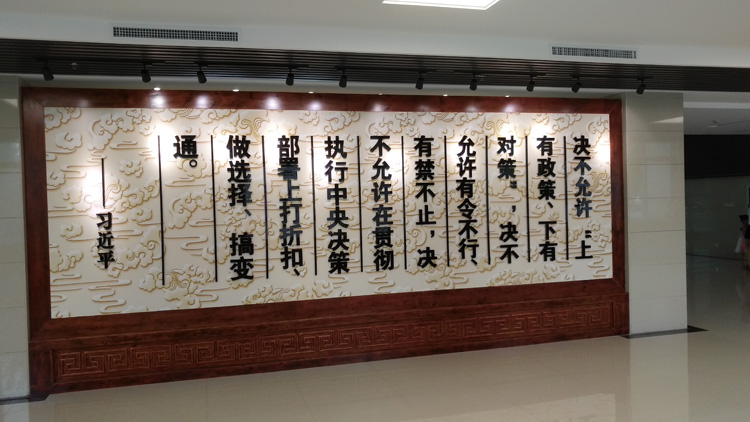 决不允许“上
有政策、下有
对策”，决不
允许有令不行、
有禁不止，决
不允许在贯彻
执行中央决策
部署上打折扣、
做选择、搞变
通。
——习近平